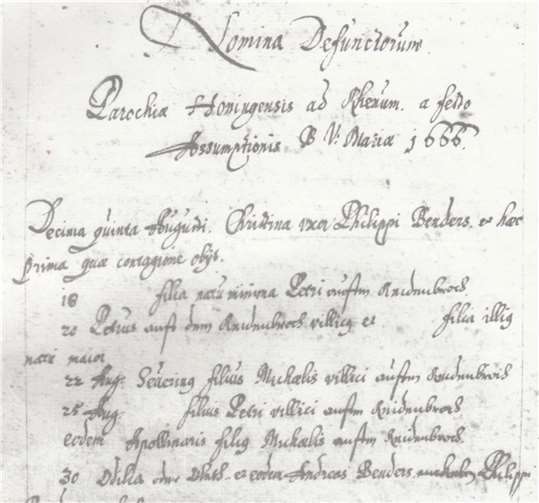 Nomina Defunctorum
Parochiæ Honingensis ad Rhenum. a festo
Assumptionis B V: Mariæ 1666.
Decima quinta Augusti. Christina uxor Philippi Benders. et hæc
prima quæ contagione obijt.
18 filia natu minima Petri auffm
20 Petrus auff dem villicus et filia illius
natu maior
22 Aug: Severinus filius Michaelis villici auffm
25 Aug. filius Petri villici auffm
eodem Apollinaris filius Michaelis auffm
30 Odilia et eodem Andreas Benders Philippi